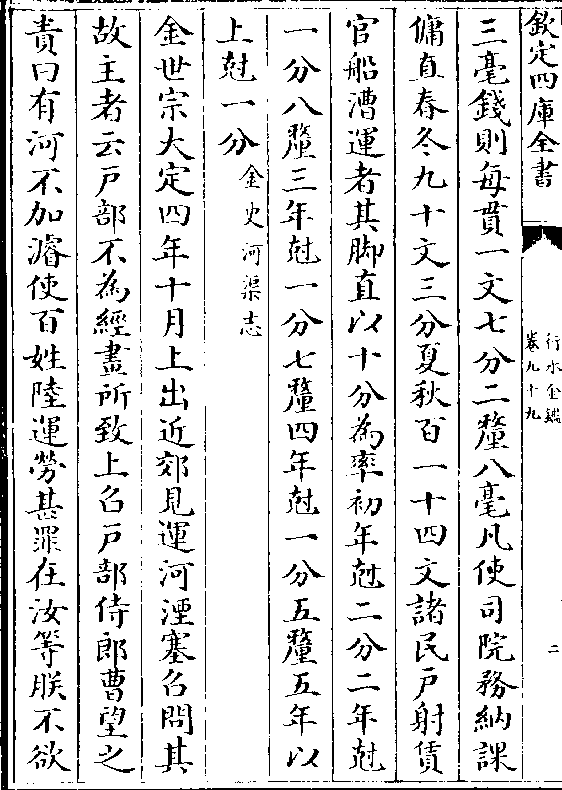 欽定四庫全書
行水金鑑
卷九十九
二
三毫錢則每貫一文七分二釐八毫凡使司院務納課
傭直春冬九十文三分夏秋百一十四文諸民戶射賃
官船漕運者其脚直以十分為率初年尅二分二年尅
一分八釐三年尅一分七釐四年尅一分五釐五年以
上尅一分金史河渠志
金世宗大定四年十月上出近郊見運河湮塞召問其
故主者云戶部不為經畫所致上召戶部侍郎曹望之
責曰有河不加濬使百姓陸運勞甚罪在汝等朕不欲